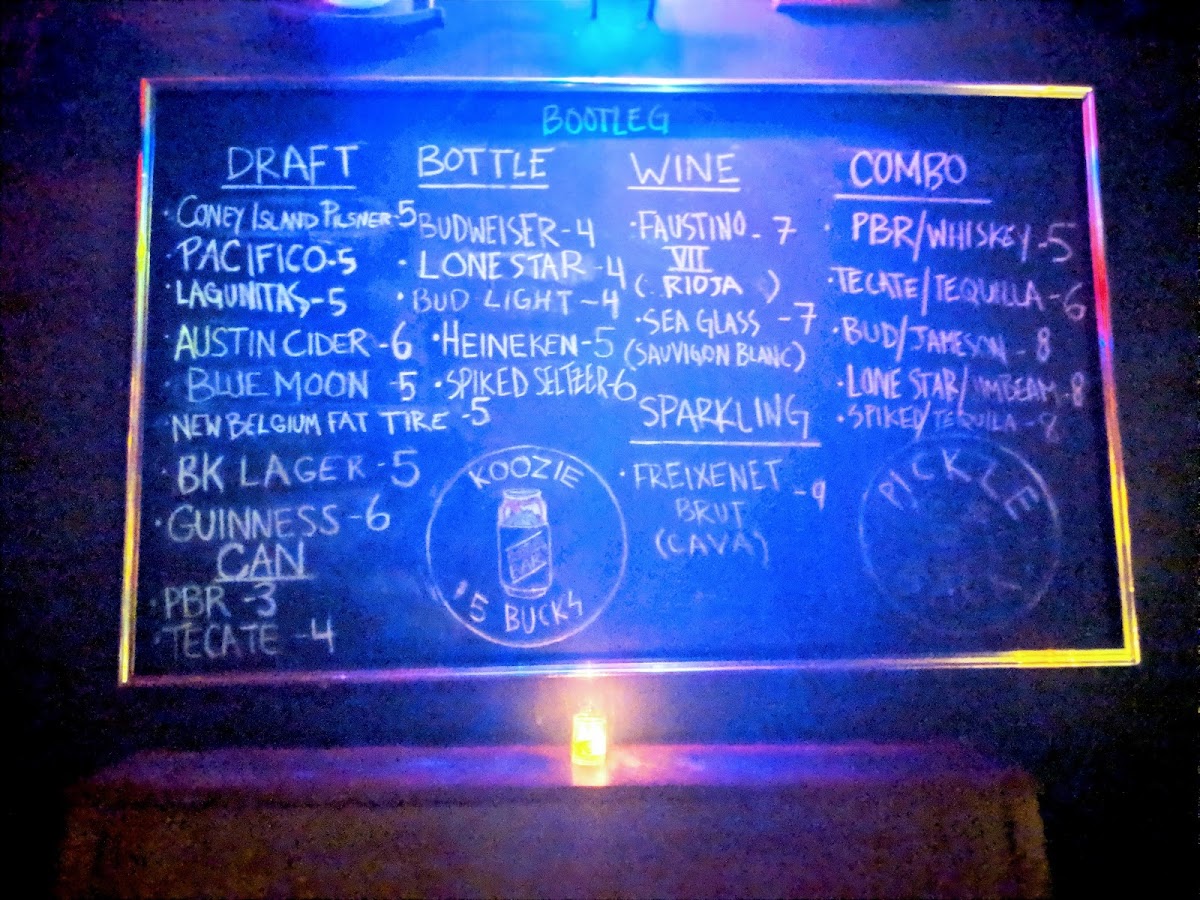 BOOTLEG
DRAFT
· CONEY ISLAND PILSNER-5
PACIFICO-5
· LAGUNITAS-5
· AUSTIN CIDER-6
· BLUE MOON -5
NEW BELGIUM FAT TIRE -5
· BK LAGER-5
· GUINNESS-6
CAN
· PBR -3
· TECATE -4
BOTTLE
BUDWEISER-4
· LONE STAR-4
· BUD LIGHT-4
· HEINEKEN-5
· SPIKED SELTZER-6
KOOZIE
15 BUCKS
WINE
· FAUSTINO - 7
VII
( RIOJA )
· SEA GLASS -7
(SAUVIGON BLANC)
SPARKLING
· FREIXENET -9
BRUT
(CAVA)
COMBO
· PBR/WHISKEY-5
· TECATE/TEQUILLA-6
· BUD/JAMESON - 8
· LONE STAR/ -8
· SPIKED/TEQUILA-8